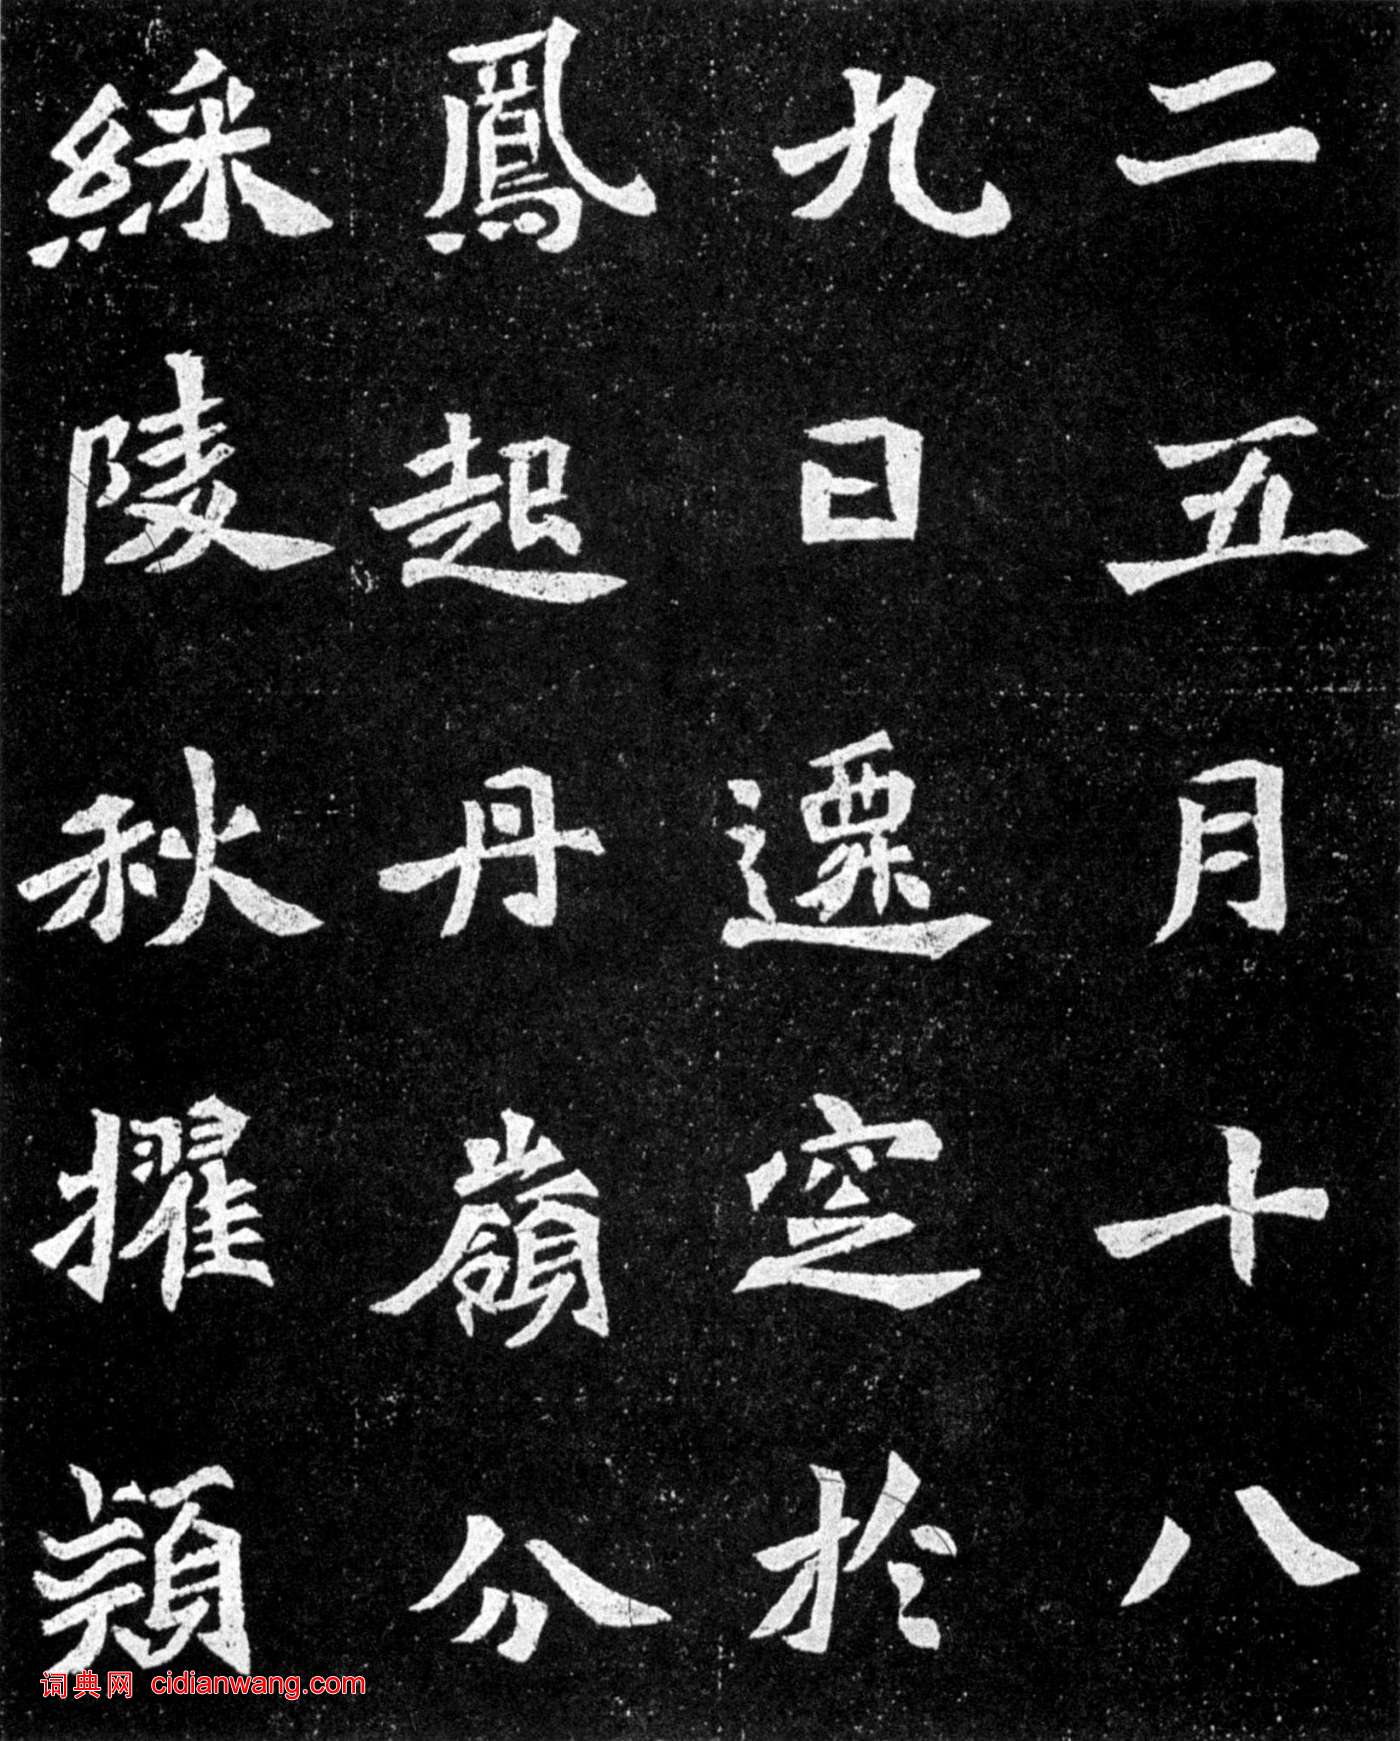 二五月十八
九日遷窆於
鳳起丹嶺分
綵陵秋擢穎
词典网 cidianwang.com